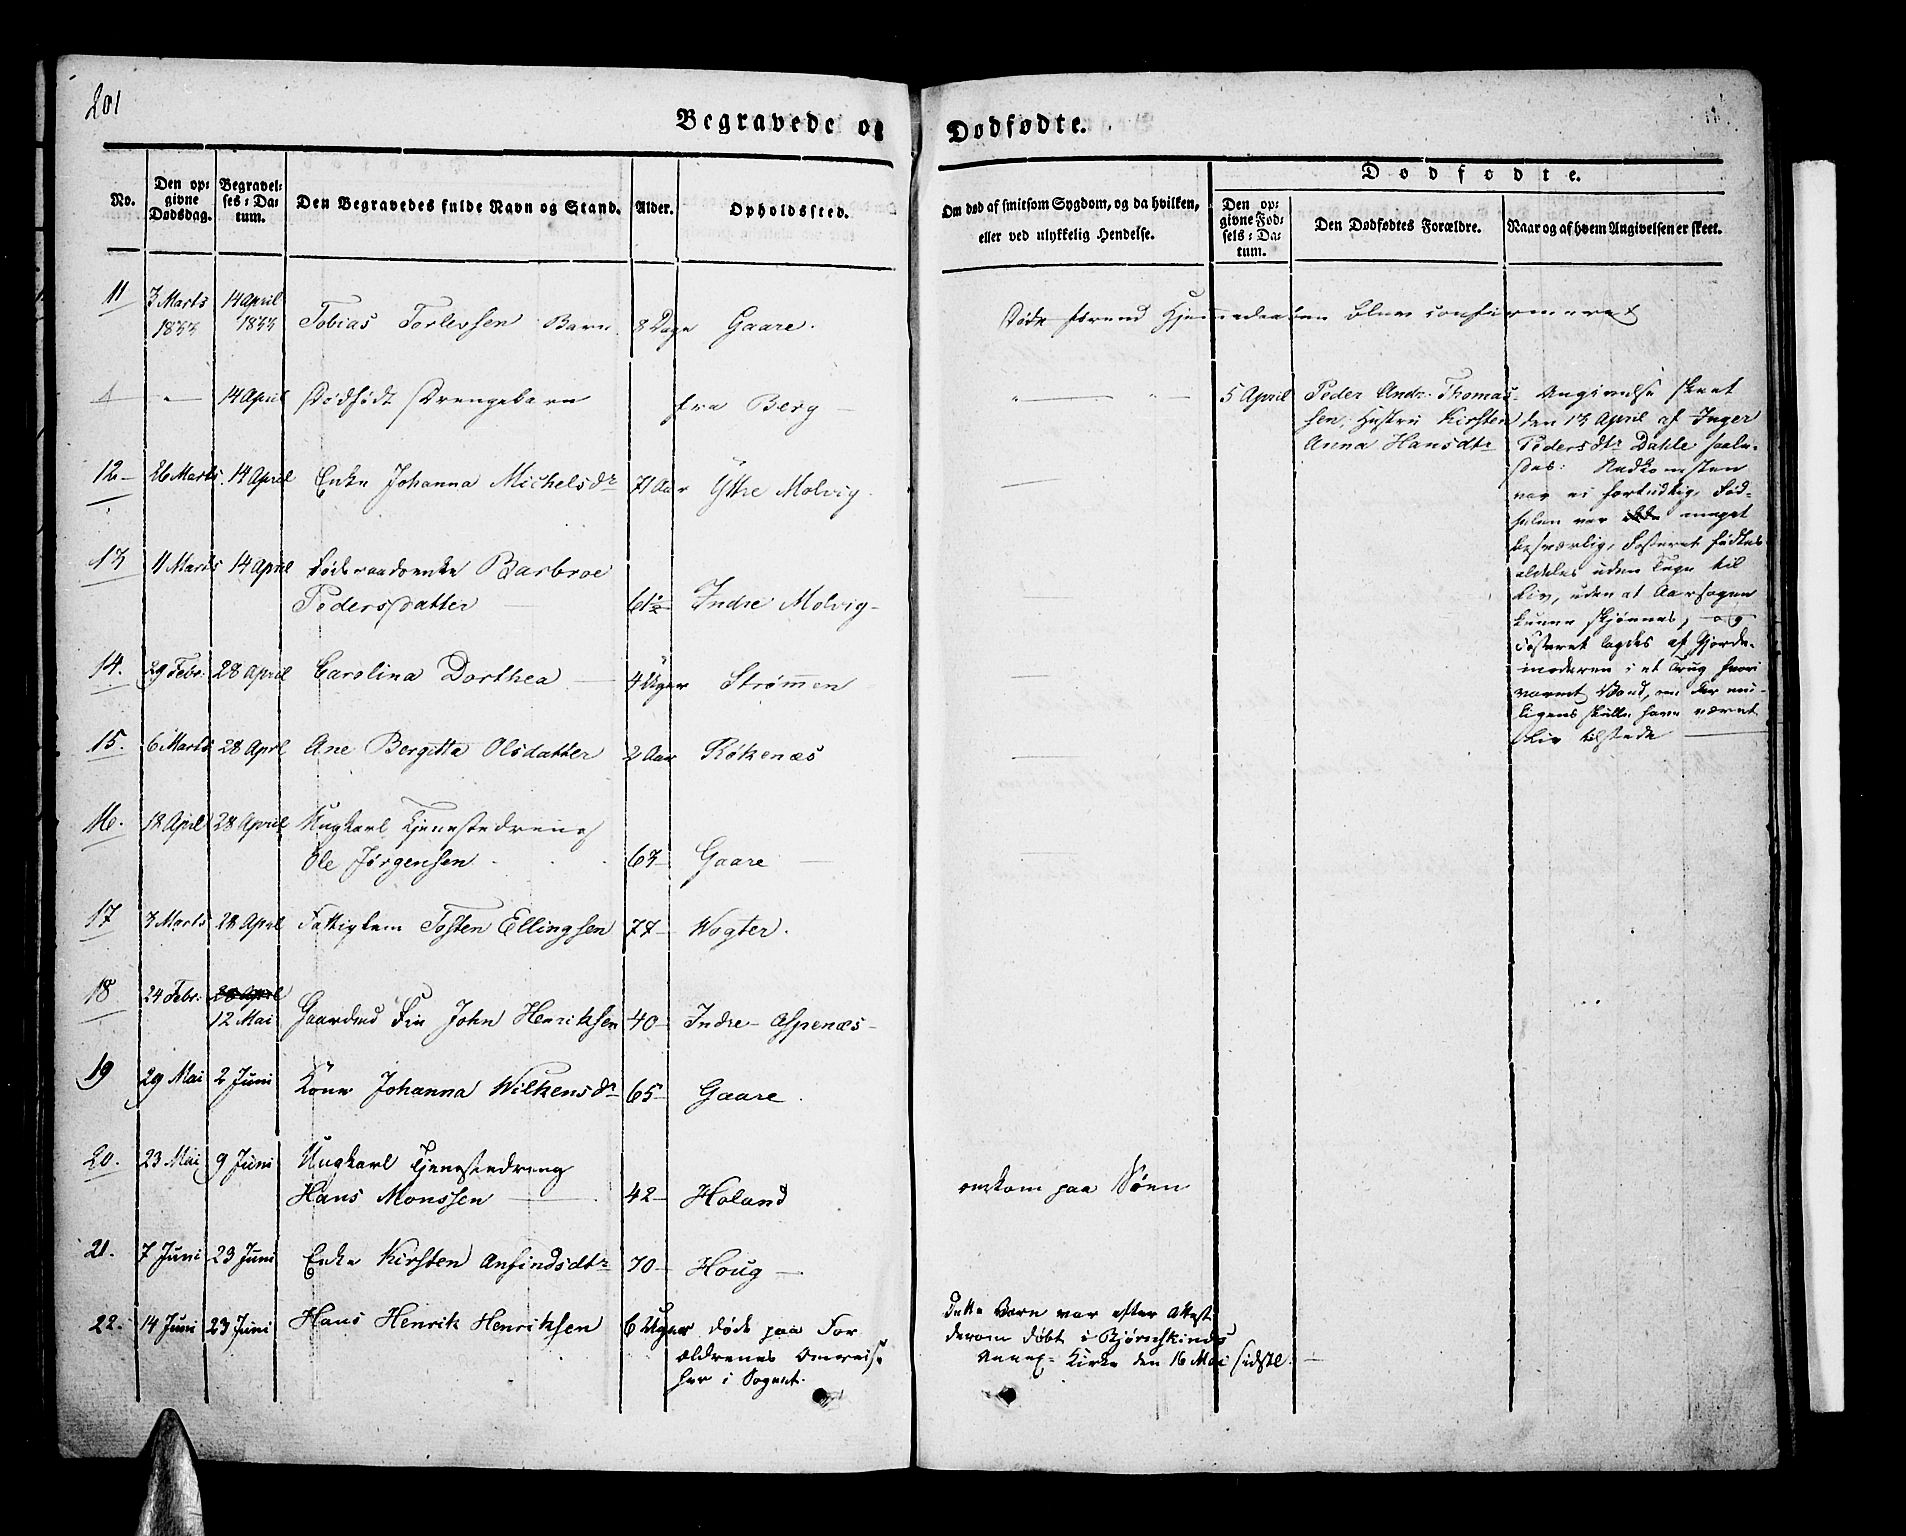 201
Begravede og Dødfødte.
No.
Den op=
givne
Dødsdag.
Begravel=
ses=Da=
tum.
Den Begravedes fulde Navn og Stand.
Alder.
Opholdssted.
Om død af smitsom Sygdom, og da hvilken,
eller ved ulykkelig Hendelse.
Dødfødte.
Den op=
givne Fød=
sels=Da=
tum.
Den Dødfødtes Forældre.
Naar og af hvem Angivelsen er skeet.
11 3 Marts 14 April
1833 1833 Tobias Torlevsen Barn 8 Dage Gaare. Døde førend Hjemmedaaben blev confirmeret
— 14 April Dødfødt Drengebarn fra Berg — 5 April Peder Andr. Thomas-
sen, Hustru Kirsten
Anna Hansdtr
Angivelse skeet
den 13 April af Inger
Pedersdtr Dahle saale-
des: Nedkomsten
var ei fortidlig, Fød-
selen var meget
besværlig, Fosteret fødtes
aldeles uden Tegn til
Liv, uden at Aarsagen
kunne skjønnes, og
Fosteret lagdes af Gjorde-
moderen i et Trug hvori
varmt Vand, om der mu-
ligens skulle have været
Liv tilstede —
12 — 26 Marts 14 April Enke Johanna Michelsdr 71 Aar Yttre Molvig.
13 11 Marts 14 April Føderaadsenke Barbroe
Pedersdatter — 61½ Indre Molvig —
14. 29 Febr: 28 April Carolina Dorthea — 4 Uger Strømmen
15. 6 Marts 28 Aprl Ane Bergitta Olsdatter 2 Aar Røkenæs
16. 18 April 28 April Ungkarl Tjenestedreng
Ole Jørgensen 63 — Gaare —
17 3 Marts 28 April Fattiglem Tosten Ellingsen 77 — Wogter.
18 24 Febr: 28 April
12 Mai Gaardmd Fin John Henriksen 40 — Indre — Aspenæs —
19 29 Mai 2 Juni Kone Johanna Wilkensdr 65 — Gaare.
20. 23 Mai 9 Juni Ungkarl Tjenestedreng
Hans Monssen — 42 — Holand omkom paa Søen
21. 7 Juni 23 Juni Enke Kirsten Anfindsdtr 70 — Houg —
22. 14 Juni 23 Juni Hans Henrik Henriksen 6 Uger døde paa For
ældrenes Omreise
her i Sognet.
Dette Barn var efter Attest
derom døbt i Bjørnskinds
Annex-Kirke den 16 Mai sidstl. —